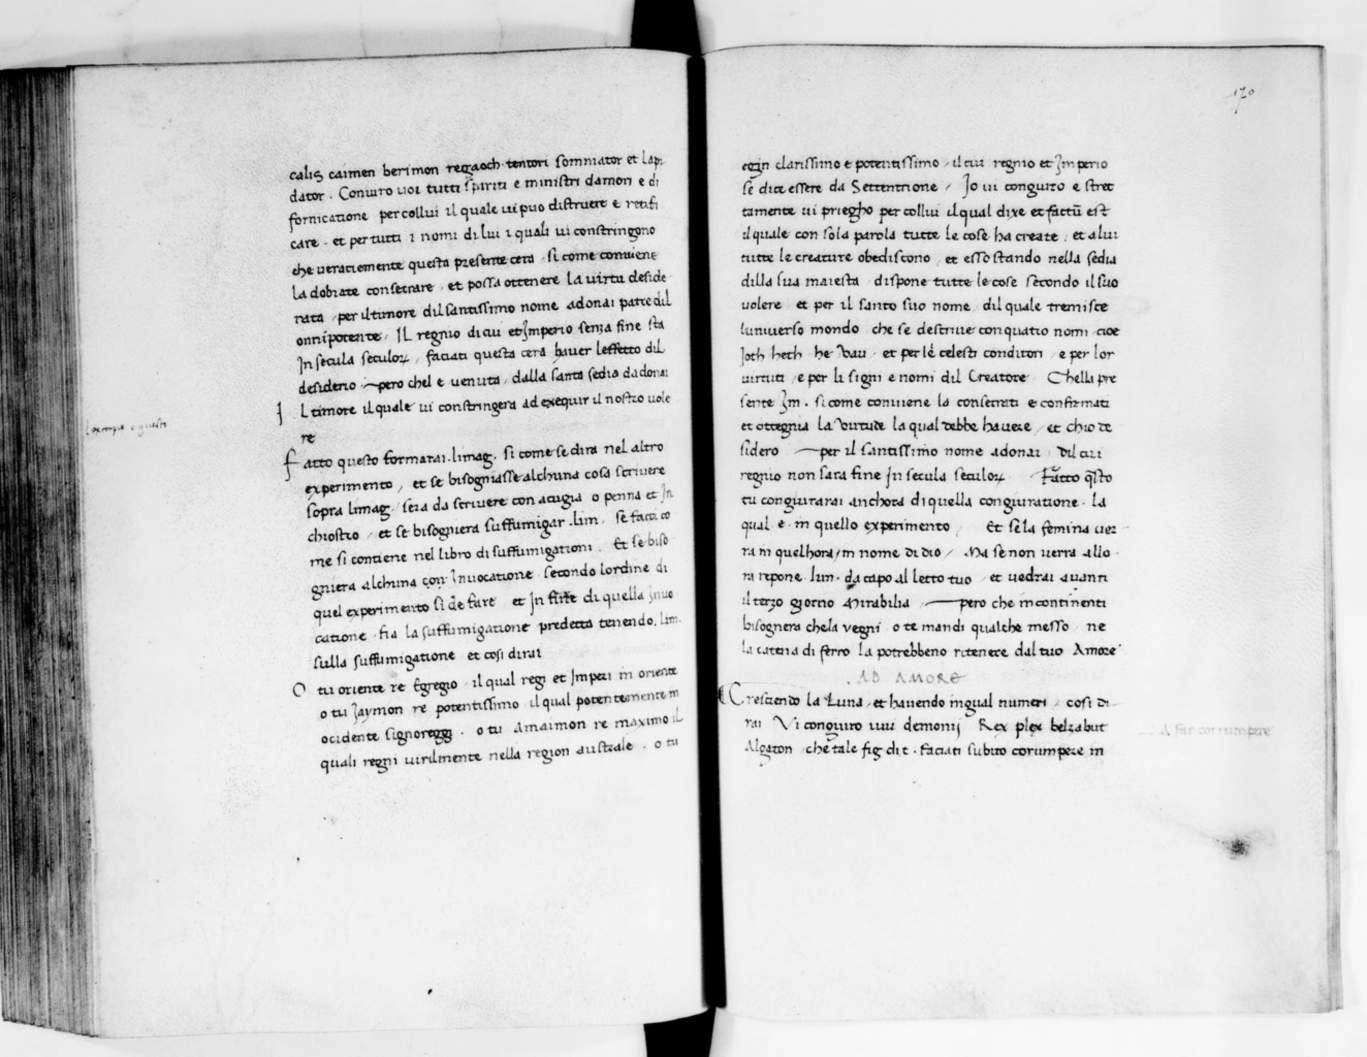 calis caimen berimon regaoch tentori somniator et lapi
dator . Coniuro uoi tutti spiriti e ministri damon e di
fornicatione per collui il quale ui puo distruere e retifi
care . et per tutti i nomi di lui i quali ui constringono
che ueraciemente questa presente cera . si come conuiene
la dobiate consecrare . et possa ottenere la uirtu deside
rata . per il timore dil santissimo nome adonai patre dil
onnipotente , IL regnio di cui et Imperio senza fine sta
In secula seculoꝝ , faciati questa cera hauer leffetto dil
desiderio . pero chel e uenuta , dalla santa sedia dadonai
I L timore il quale ui constringera ad exequir il nostro uole
re
lexempio e questo
f atto questo formarai .limag. si come se dira nel altro
experimento , et se bisogniasse alchuna cosa scriuere
sopra limag. sera da scriuere con acugia o penna et In
chiostro , et se bisogniera suffumigar .lim. se facci co
me si contiene nel libro di suffumigationi . Et se biso
gniera alchuna con Inuocatione secondo lordine di
quel experimento si de fare et In fine di quella Inuo
catione . fia la suffumigatione predetta tenendo .lim.
sulla suffumigatione et cosi dirai
O tu oriente re Egregio . il qual regi et Imperi in oriente
o tu Jaymon re potentissimo il qual potentemente in
ocidente signoreggi . o tu Amaimon re maximo il
quali regni uirilmente nella region australe . o tu
170
egin clarissimo e potentissimo . il cui regnio et Imperio
se dice essere da Settentrione / Io ui conguiro e stret
tamente ui priegho per collui il qual dixe et factū est
il quale con sola parola tutte le cose ha create . et a lui
tutte le creature obediscono , et esso stando nella sedia
dilla sua maiesta . dispone tutte le cose secondo il suo
uolere et per il santo suo nome . dil quale tremisce
luniuerso mondo che se descriue con quatro nomi cioe
Joth heth he Vau . et per le celesti conditori , e per lor
uirtuti , e per li signi e nomi dil Creatore Chella pre
sente Im . si come conuiene la consecrati e confirmati
et ottegnia la Virtude la qual debbe hauere , et chio de
sidero per il santissimo nome adonai . dil cui
regnio non sara fine In secula seculoꝝ Fatto q̄sto
tu congiurarai anchora di quella congiuratione . la
qual . e . in quello experimento , Et se la femina uer
ra in quelhora / in nome di dio / Ma se non uerra allo
ra repone .lim. da capo al letto tuo , et uedrai auanti
il terzo giorno Mirabilia pero che incontinenti
bisognera che la vegni o te mandi qualche messo ne
la catena di ferro la potrebbeno ritenere dal tuo Amore
. AD AMORE
Crescendo la Luna , et hauendo ingual numeri , cosi di
rai Vi conguiro uuu demonij Rex plex belzabut
Algaton che tale fig di t . faciati subito corumpere in
A far corrumpere